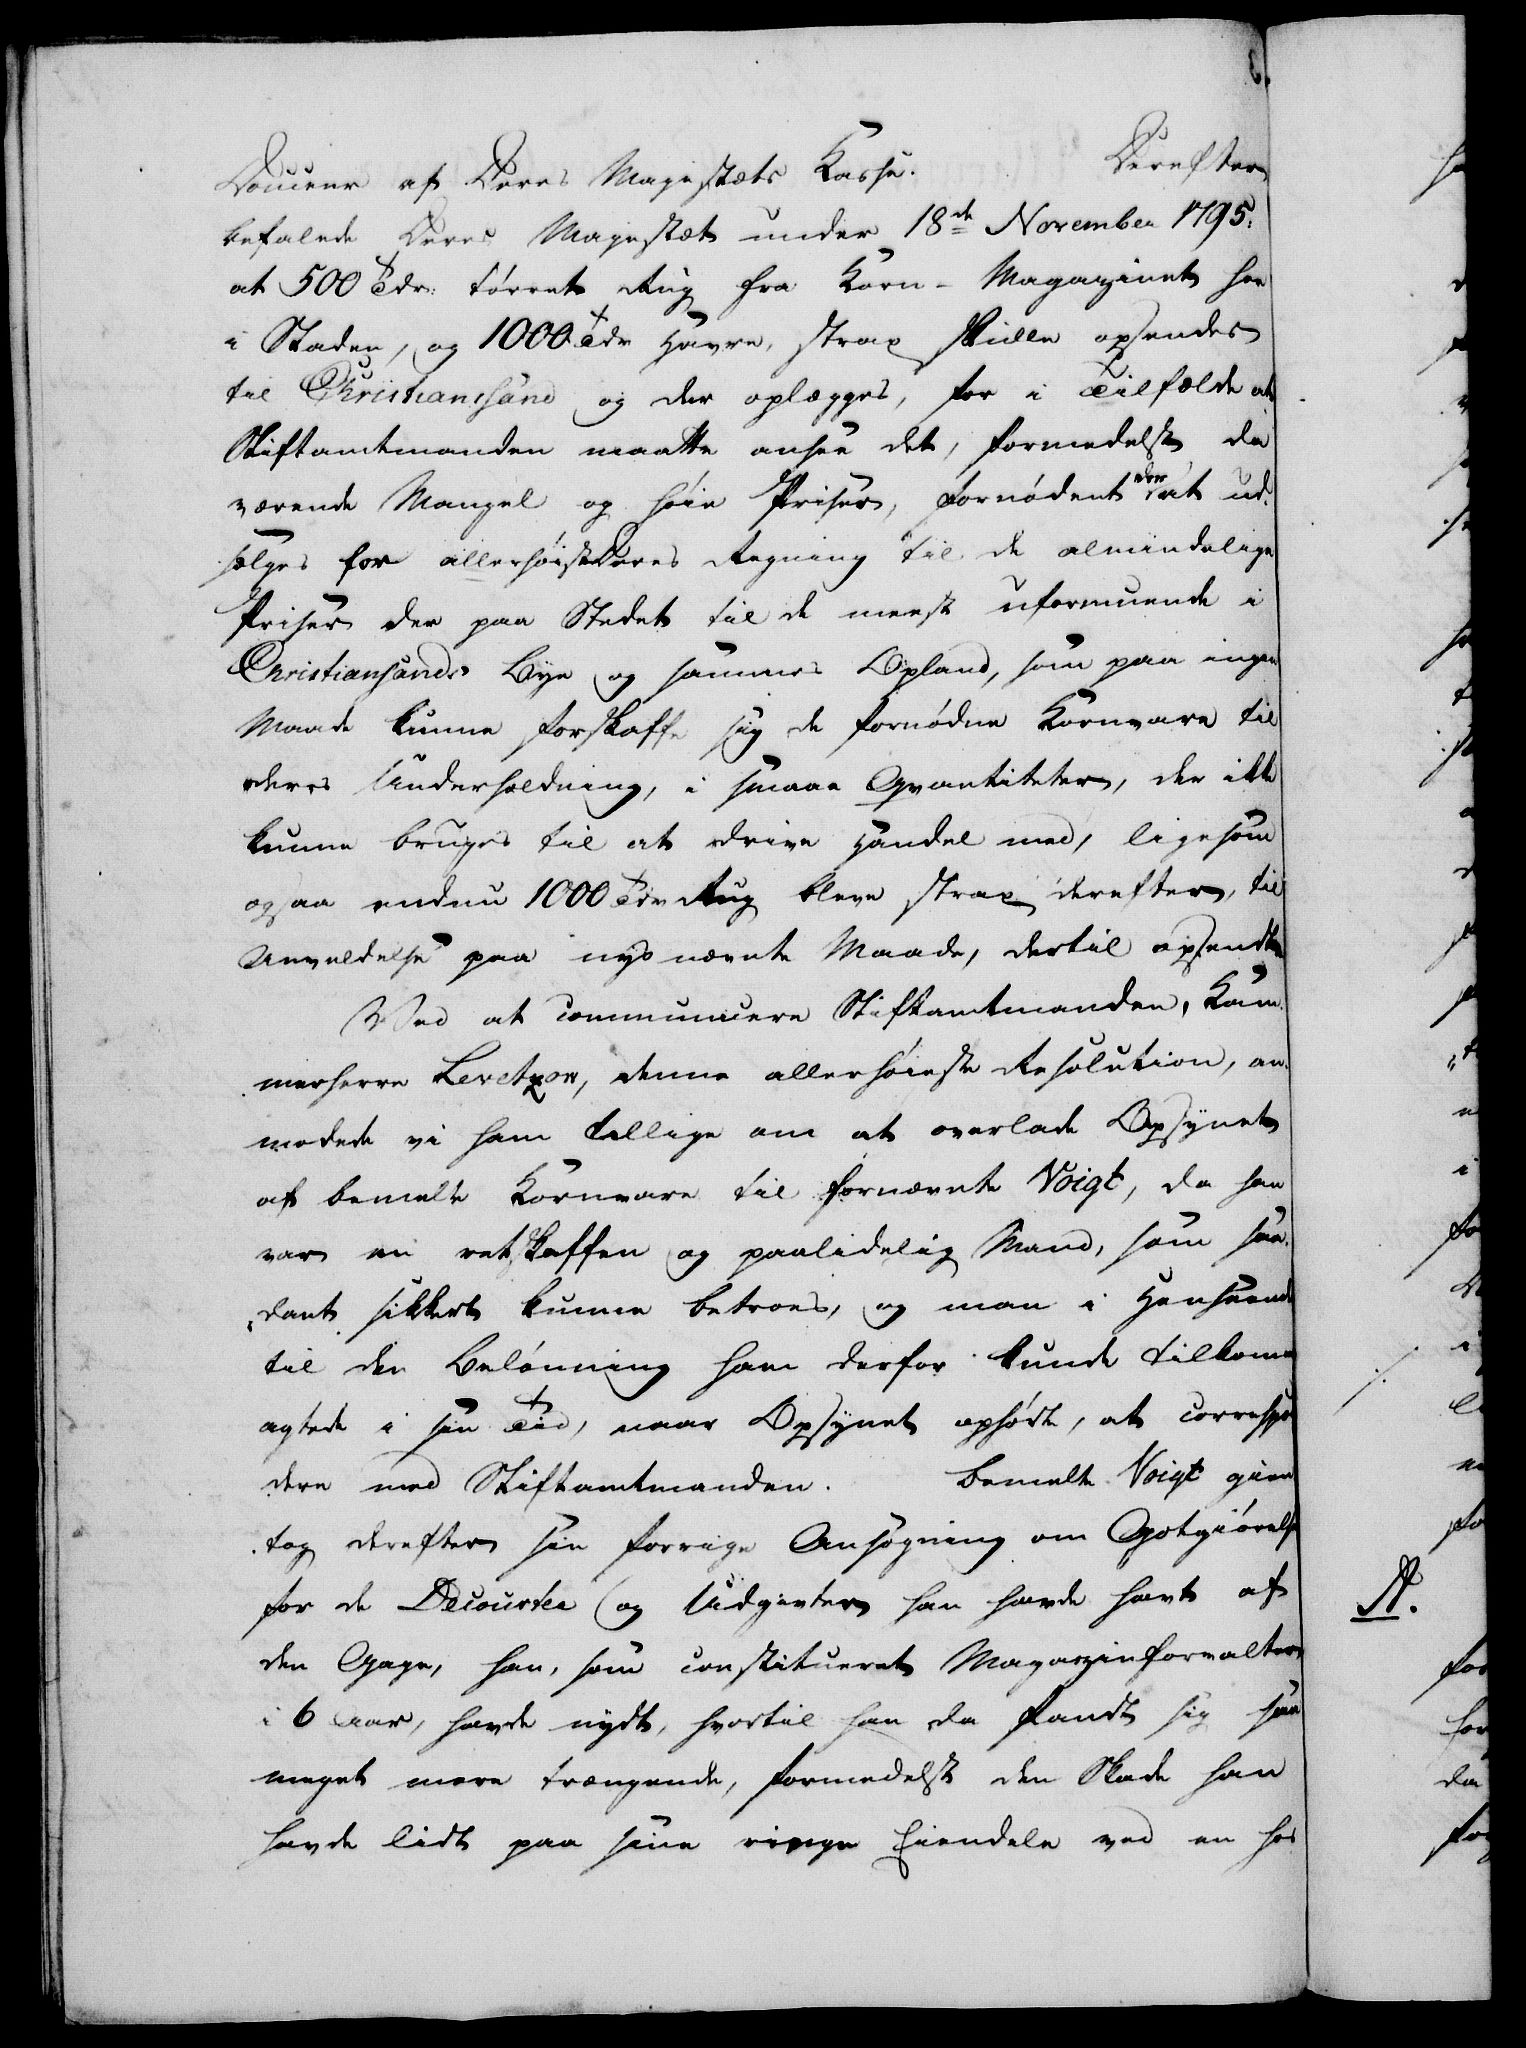 Douceur af Deres Majestæts Kasse. Derefter
befalede Deres Majestæt under 18de November 1795.
at 500 Tdr: tørret Rug fra Korn-Magazinet her
i Staden, og 1000 Tdr Havre, strax skulle opsendes
til Christiansand og der oplægges, for i Tilfælde at
Stiftamtmanden maatte ansee det, formedelst da
værende Mangel og høie Priser, fornødent der at ud-
sælges for allerhøistDeres Regning til de almindelige
Priser der paa Stedet til de meest uformuende i
Christiansands Bye og sammes Opland, som paa ingen
Maade kunne forskaffe sig de fornødne Kornvare til
deres Underholdning, i smaae Qvantiteter, der ikke
kunne bruges til at drive Handel med, ligesom
ogsaa endnu 1000 Tdr Rug bleve strax derefter, til
Anvendelse paa nys nævnte Maade, dertil opsendte
Ved at communicere Stiftamtmanden, Kam-
merherre Levetzow, denne allerhøieste Resolution, an-
modede vi ham tillige om at overlade Opsynet
af bemelte Kornvare til fornævnte Voigt, da han
var en retskaffen og paalidelig Mand, som saa-
dant sikkert kunne betroes, og man i Henseende
til den Belønning ham derfor kunde tilkomme
agtede i sin Tid, naar Opsynet ophørte, at correspon
dere med Stiftamtmanden. Bemelte Voigt gien
tog derefter sin forrige Ansøgning om Godtgiørelse
for de Decourter og Udgivter han havde havt af
den Gage, han, som constitueret Magazinforvalter
i 6 Aar, havde nydt, hvortil han da fandt sig saa
meget mere trængende, formedelst den Skade han
havde lidt paa sine ringe Eiendele ved en hos
A.